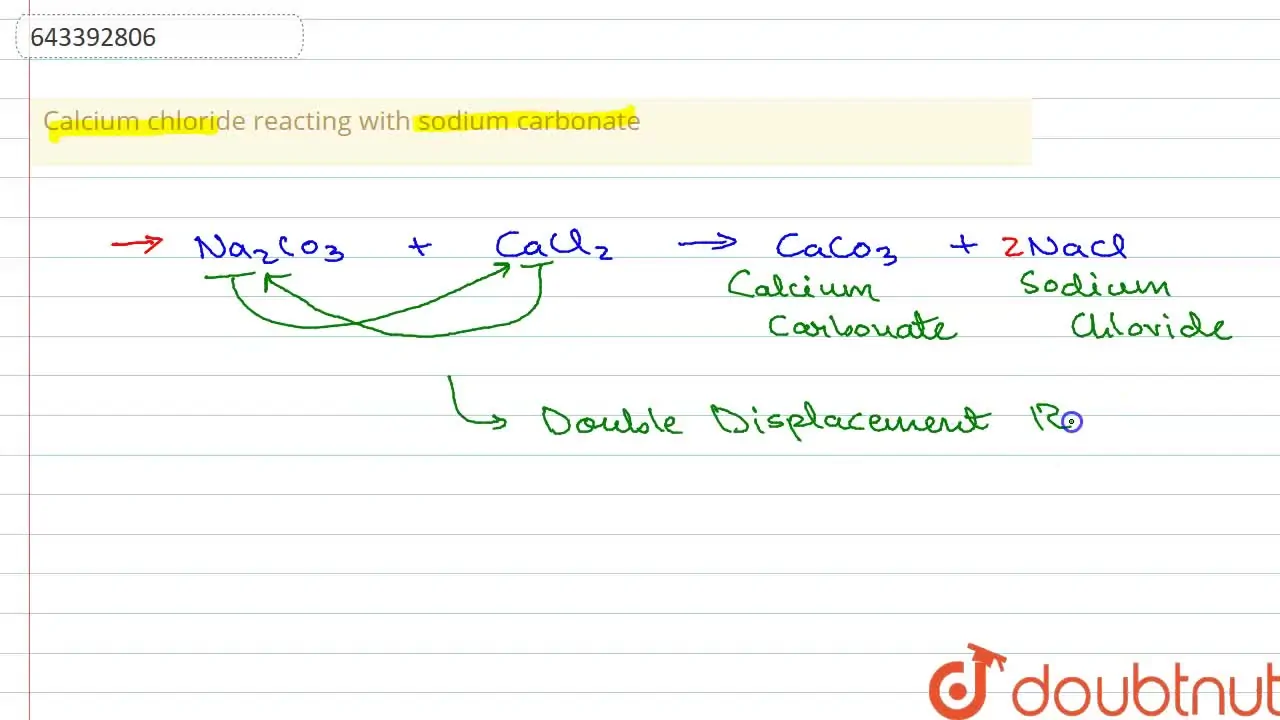 643392806
Calcium chloride reacting with sodium carbonate
→ Na₂CO₃ + CaCl₂ → CaCO₃ + 2NaCl
Calcium Sodium
Carbonate Chloride
Double Displacement Re
doubtnut